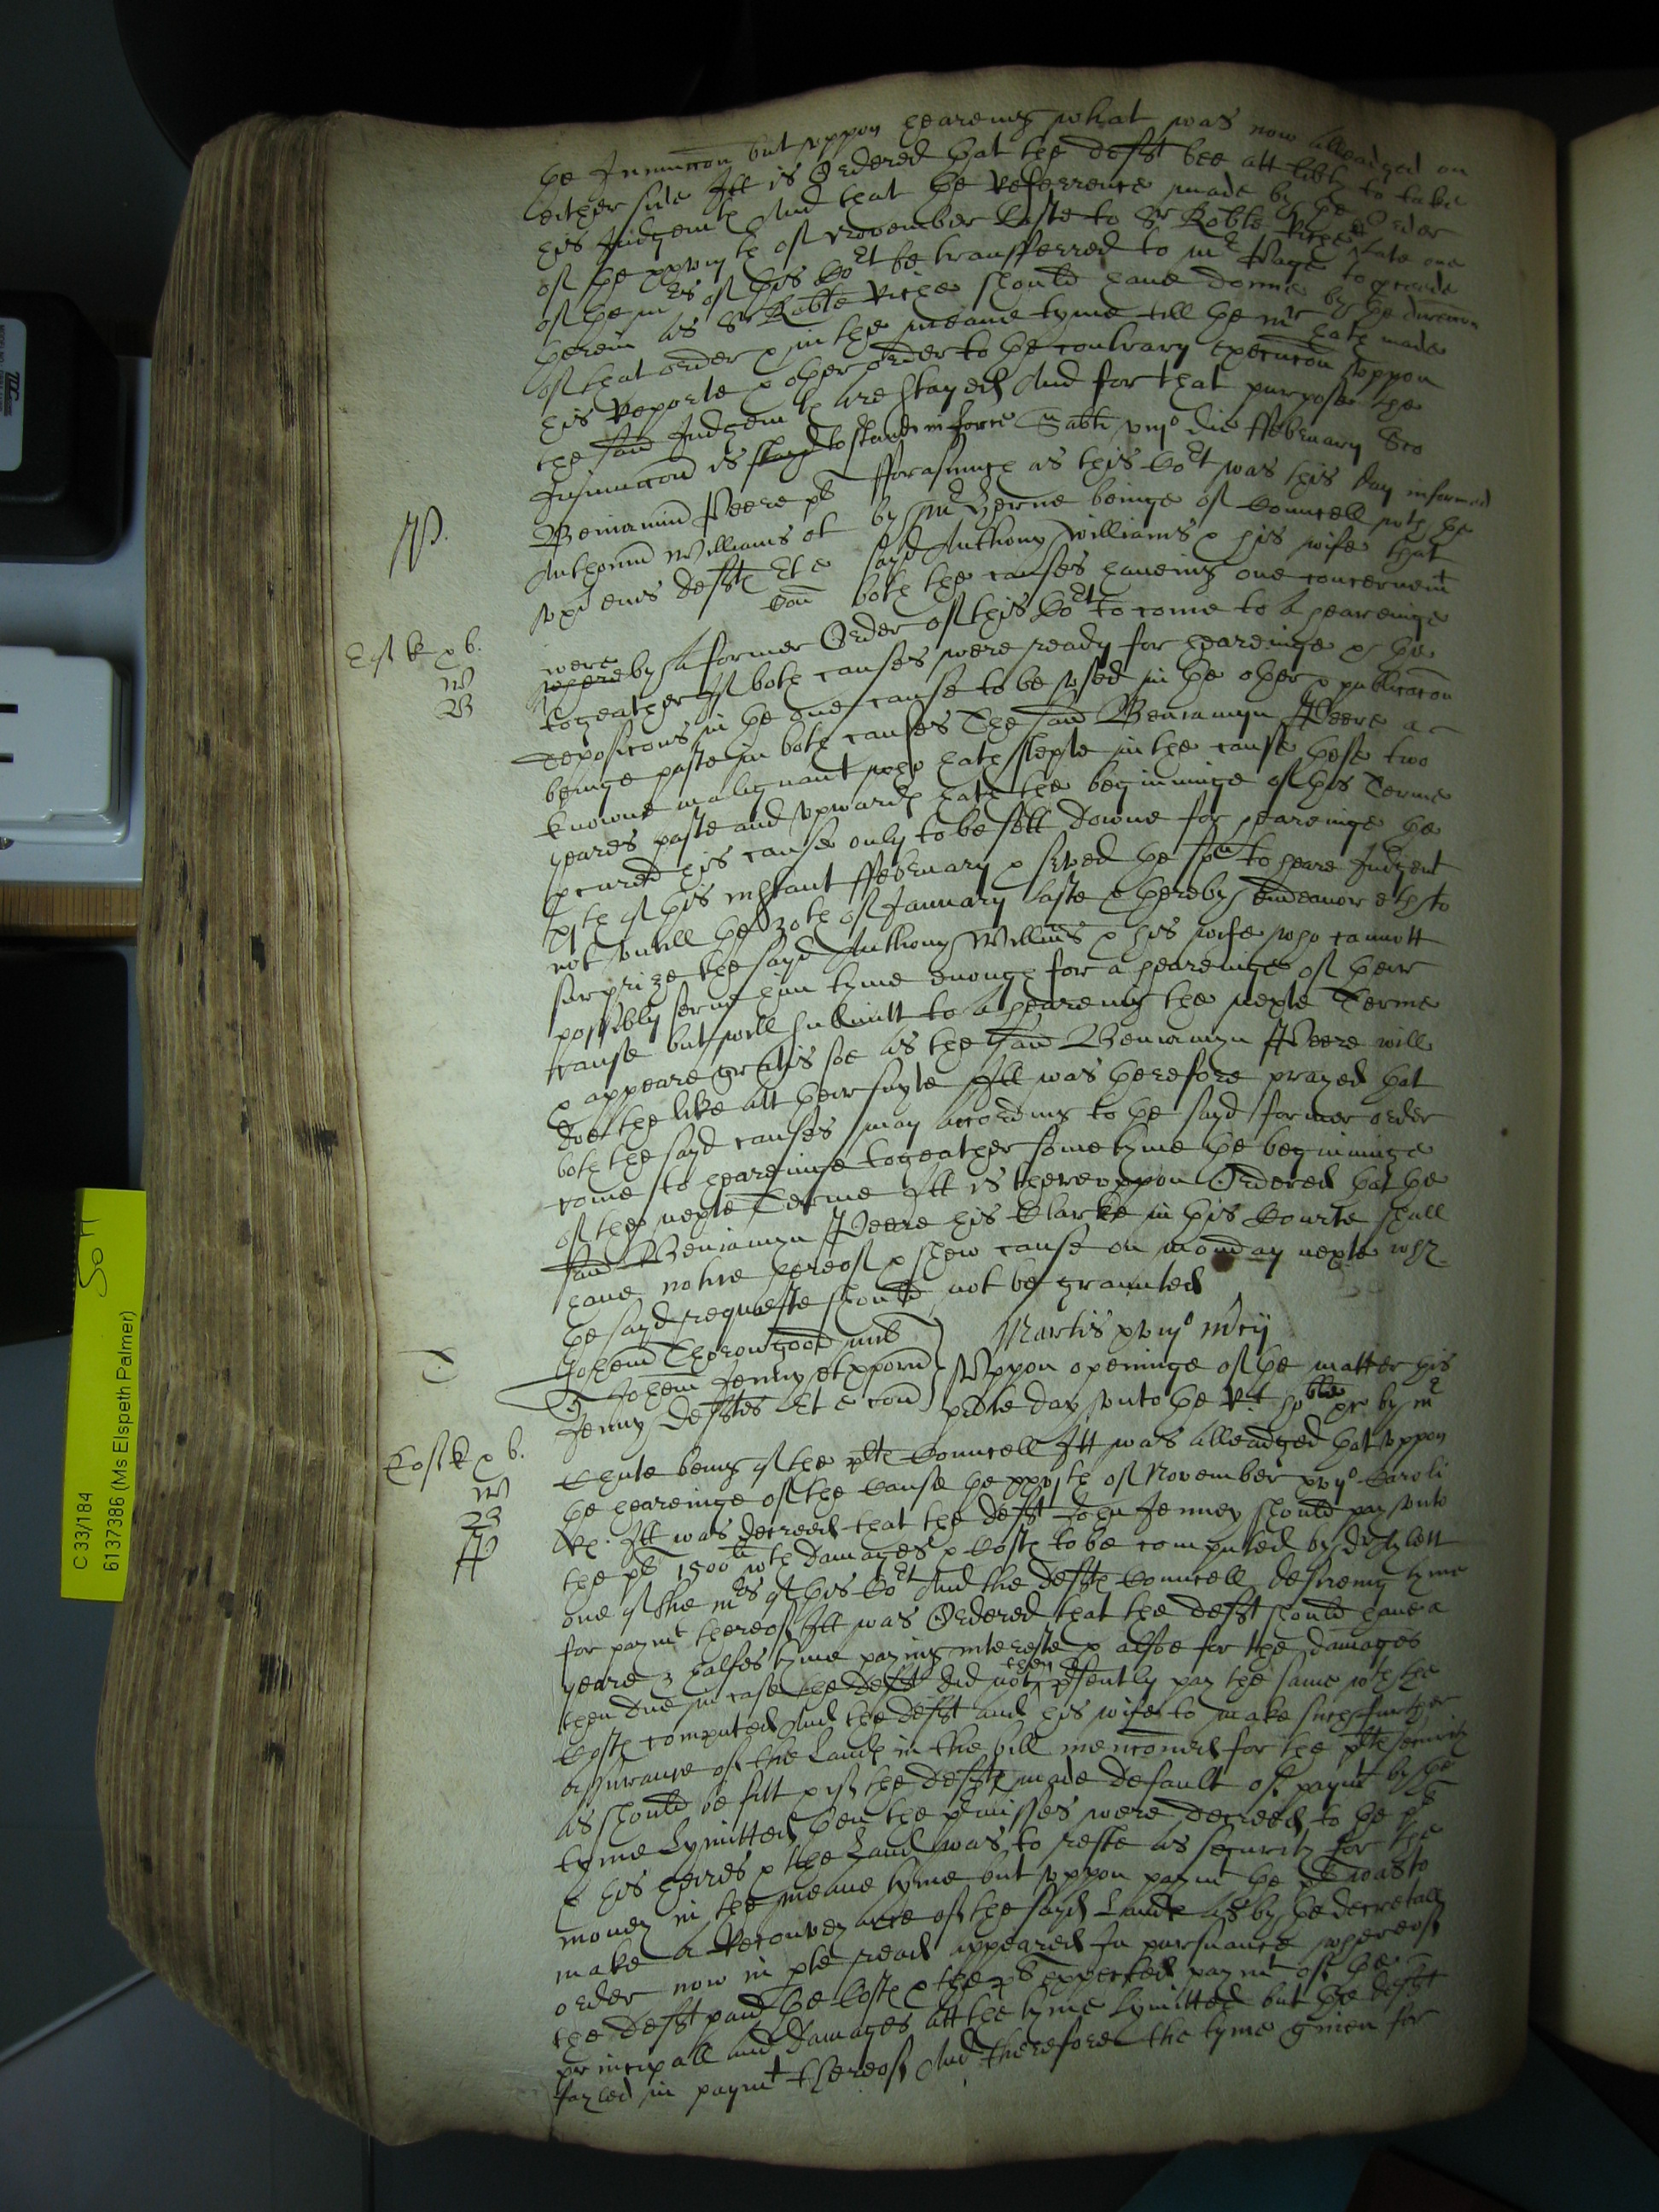 the Iniunccon but vppon heareing what was now alleadged on
either side Itt is Ordered that the defft bee att libty to take
his Iudgemt And that the Reference made by the Order
of the xxviijth of November Laste to Sr Robte Riche Late one
of the mrs of this Cort be transfferred to mr Page to proceede
therein as Sr Robte Riche should have donne by the direccon
of that order & in the meane tyme till the mr hath made
his Reporte & other order to the contrary execucon vppon
the said Iudgemt are stayed And for that purpose the
Iniunccon is stayd to stande in force Sabti viijo die ffebruary
Beniamin Peere pl fforasmuch as this Cort was this day informed
Anthonid Williams et by mr Herne beinge of Councell with the
vx eius deffts Et e sayd Anthony Williams & his wife that
con both the causes haveing one concernemt
were
whereby a former Order of this Cort to come to a heareinge
togeather If both causes were ready for heareinge & the
deposicons in the one cause to be vsed in the other & publicacon
beinge paste in both causes The said Beniamyn Peere a
knowne malignant who hath slepte in the cause these two
yeares paste and vpwards hath the beginninge of this Terme
procured his cause only to be sett downe for heareinge the
xjth of this instant ffebruary & served the spa to heare Iudgemt
not vntill the 30th of Ianuary laste & thereby endeavoreth to
surprize the sayd Anthony Williams & his wife who cannott
possibly serve him tyme enough for a heareinge of their
cause but will submitt to a heareing the nexte Terme
& appeare gratis soe as the said Beniamyn Peere will
doe the like att their suyte Itt was therefore prayed that
both the sayd causes may according to the sayd former order
come to heareinge togeather some tyme the beginninge
of the nexte Terme Itt is therevppon Ordered that the
said Beniamyn Peere his Clarke in this Courte shall
have notice hereof & shew cause on monday nexte why
the sayd requeste should not be graunted
Martis xviijo
Iohem Thorowgood
Iohem Ienny et vxorem Vppon openinge of the matter this
Ienny deffts Et e con pnte day vnto the Rt hoble by mr
Chute being of the plts Councell Itt was alleadged that vppon
the heareinge of the Cause the of November xvijo Caroli
Rx. Itt was decreed that the defft Iohn Ienney should pay vnto
the pl 1500li with damages & Costs to be computed by
one of the mrs of this Cort And the deffts Councell desireing tyme
for paymt thereof Itt was Ordered that the defft should have a
yeare & halfes tyme paying intereste & alsoe for the damages
then
then due in case the defft did not presently pay the same with the
Costs computed And the defft and his wife to make such further
assurance of the Lands in the bill menconed for the plts security
as should be fitt & if the deffts made default of paymt by the
tyme Lymitted then the premisses were decreed to the pl
& his heires & the Land was to reste as security for the
money in the meane tyme but vppon paymt the pl was to
make a Reconveyance of the sayd Lands As by the decretall
order now in pte read appeared In pursuance whereof
the defft paid the Costs & the pl expected paymt of the
principall and damages att the tyme Lymitted but the defft
fayled in paymt thereof And therefore the tyme given for
C 33/184
6137386 (Ms Elspeth Palmer)